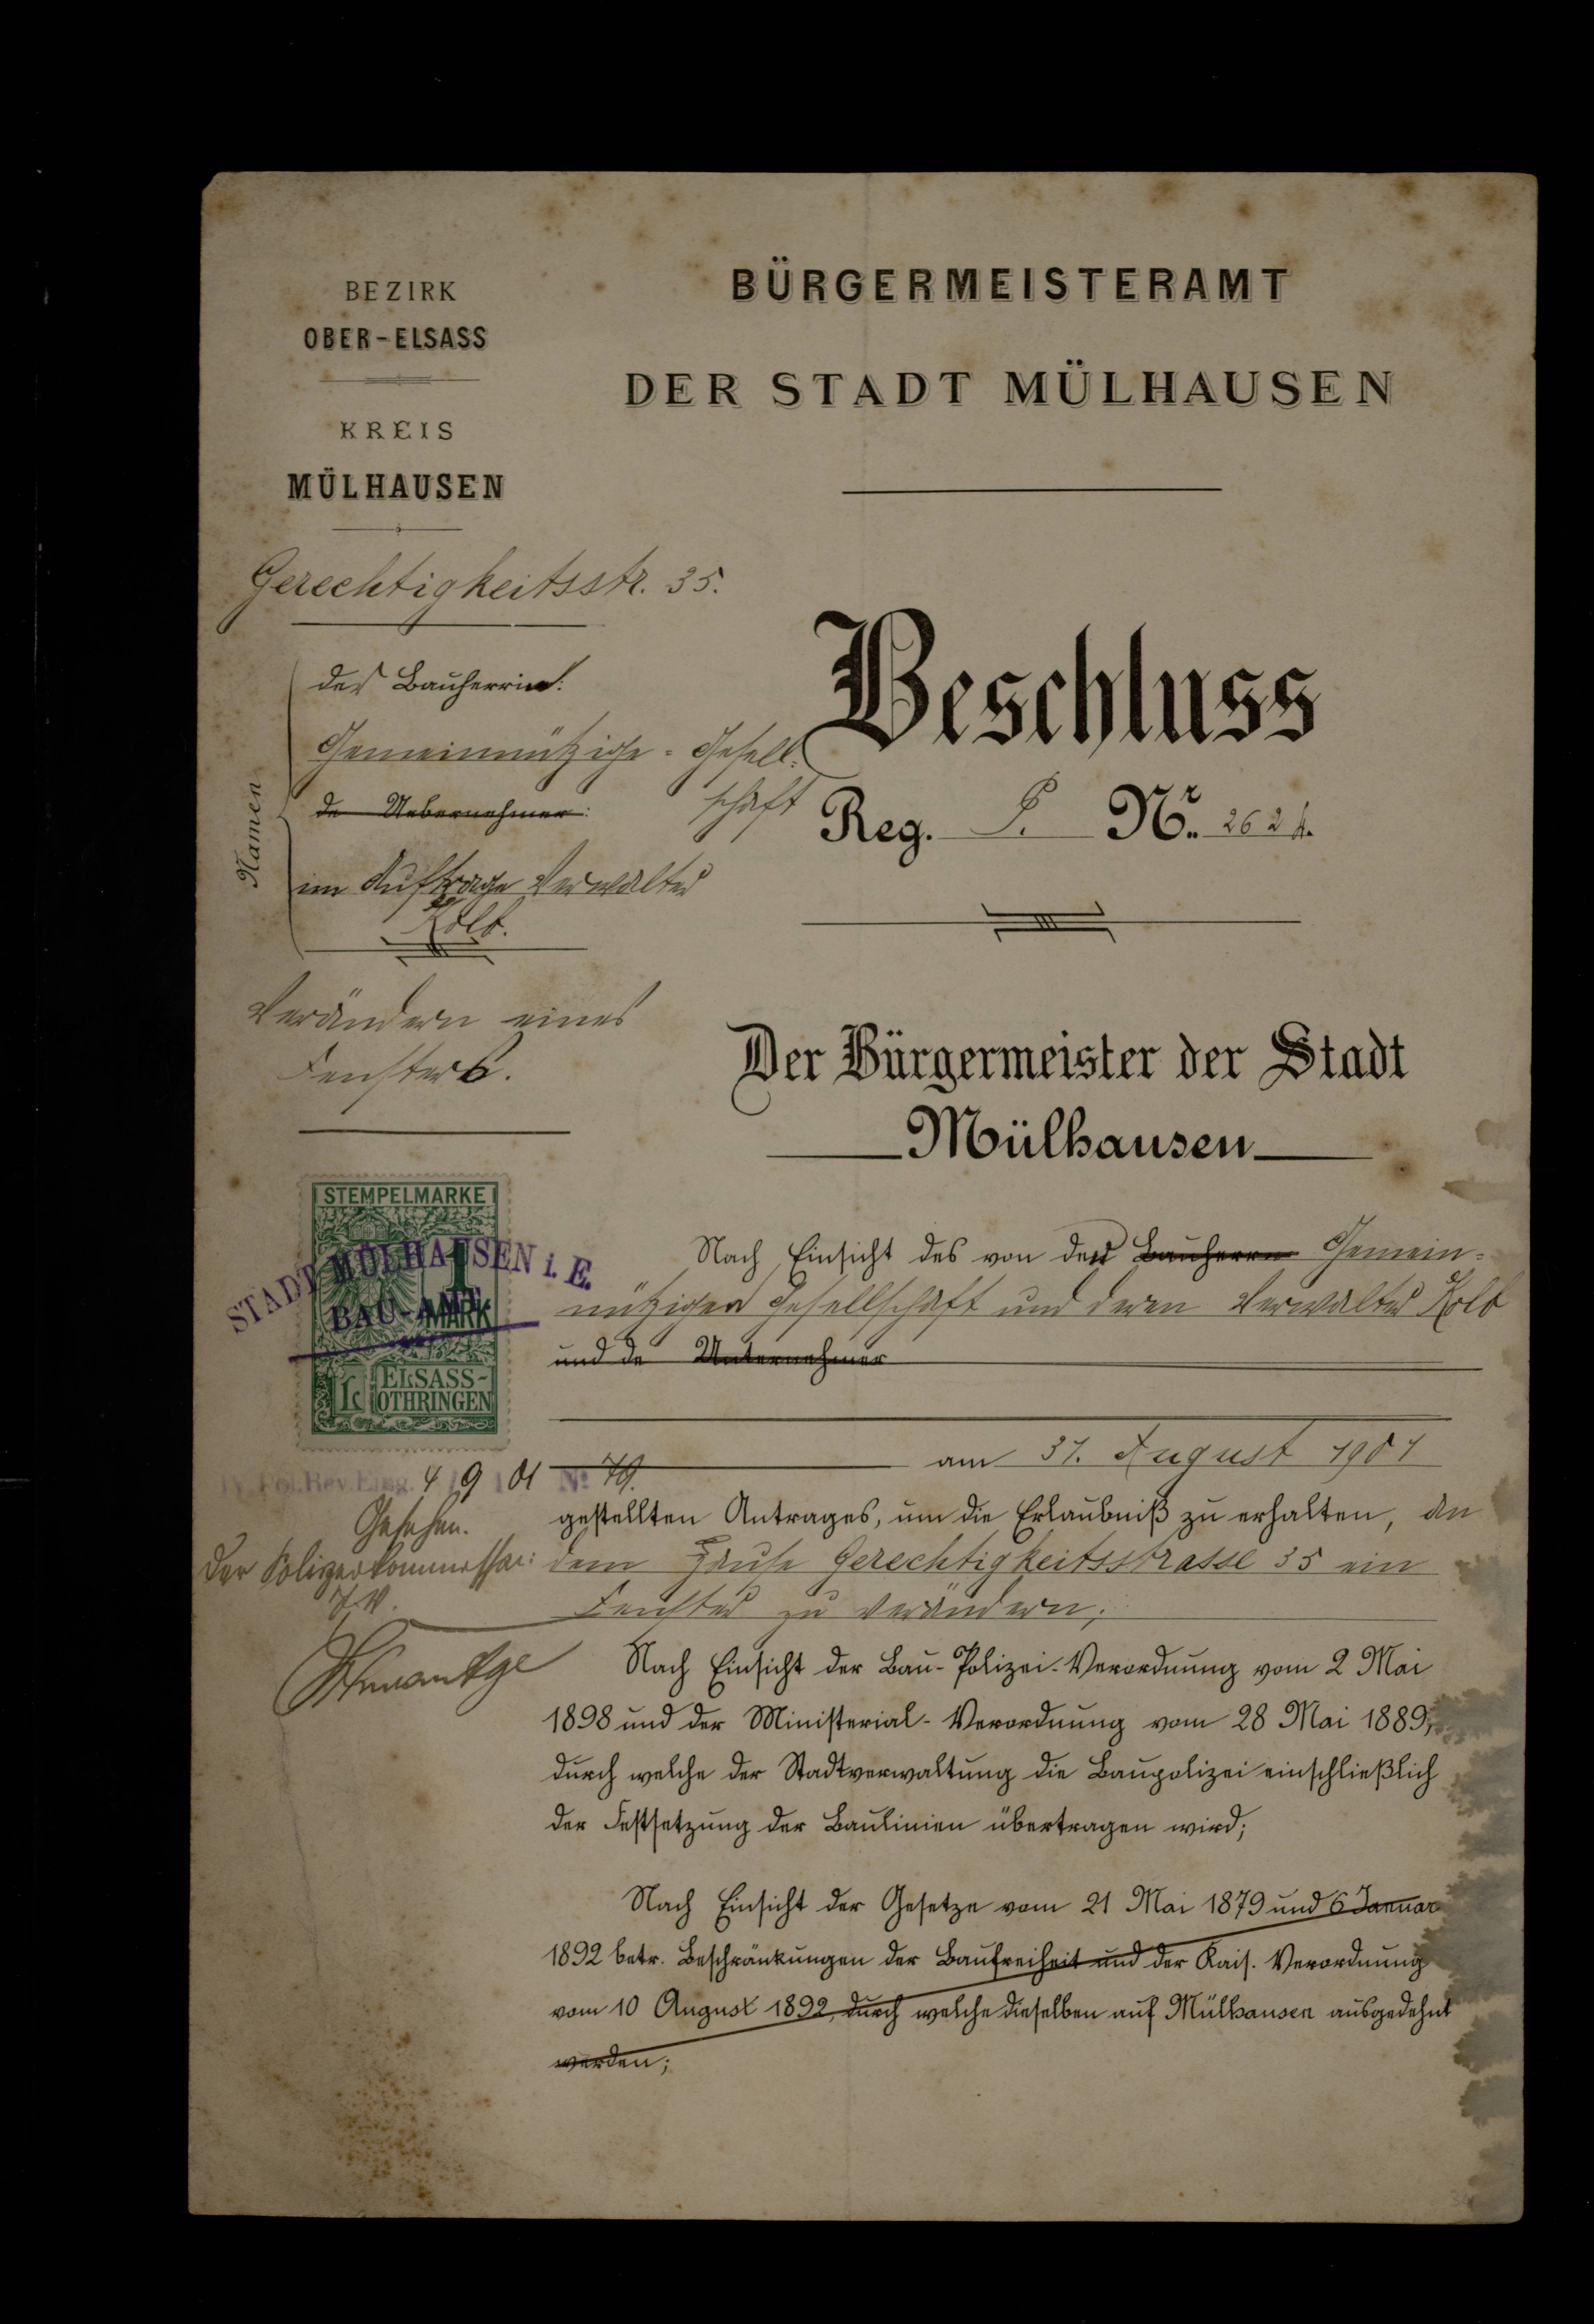 BEZIRK
OBER-ELSASS
KREIS
MÜLHAUSEN
BÜRGERMEISTERAMT
DER STADT MÜLHAUSEN
Gerechtigkeitsstr. 35.
Namen
der Bauherrin:
Gemeinnützige-Gesell-
schaft
de Uebernehmer:
im Auftrage Verwalter
Kolb.
Verändern eines
Fensters.
Beschluss
Reg. P. Nr. 2624.
Der Bürgermeister der Stadt
Mülhausen
STEMPELMARKE
1
MARK
ELSASS-
LOTHRINGEN
STADT MÜLHAUSEN i. E.
BAU-AMT
Nach Einsicht des von der Bauherrn Gemein-
nützigen Gesellschaft und deren Verwalter Kolb
und de Unternehmer
am 31. August 1901
IV. Pol.Rev. Eing. 4 9 01 No 79.
Gesehen.
Der Polizeikommissar:
gestellten Antrages, um die Erlaubniß zu erhalten, an
dem Hause Gerechtigkeitsstrasse 35 ein
Fenster zu verändern;
Nach Einsicht der Bau-Polizei-Verordnung vom 2 Mai
1898 und der Ministerial-Verordnung vom 28 Mai 1889,
durch welche der Stadtverwaltung die Baupolizei einschließlich
der Festsetzung der Baulinien übertragen wird;
Nach Einsicht der Gesetze vom 21 Mai 1879 und 6 Januar
1892 betr. Beschränkungen der Baufreiheit und der Kais. Verordnung
vom 10 August 1892, durch welche dieselben auf Mülhausen ausgedehnt
werden;